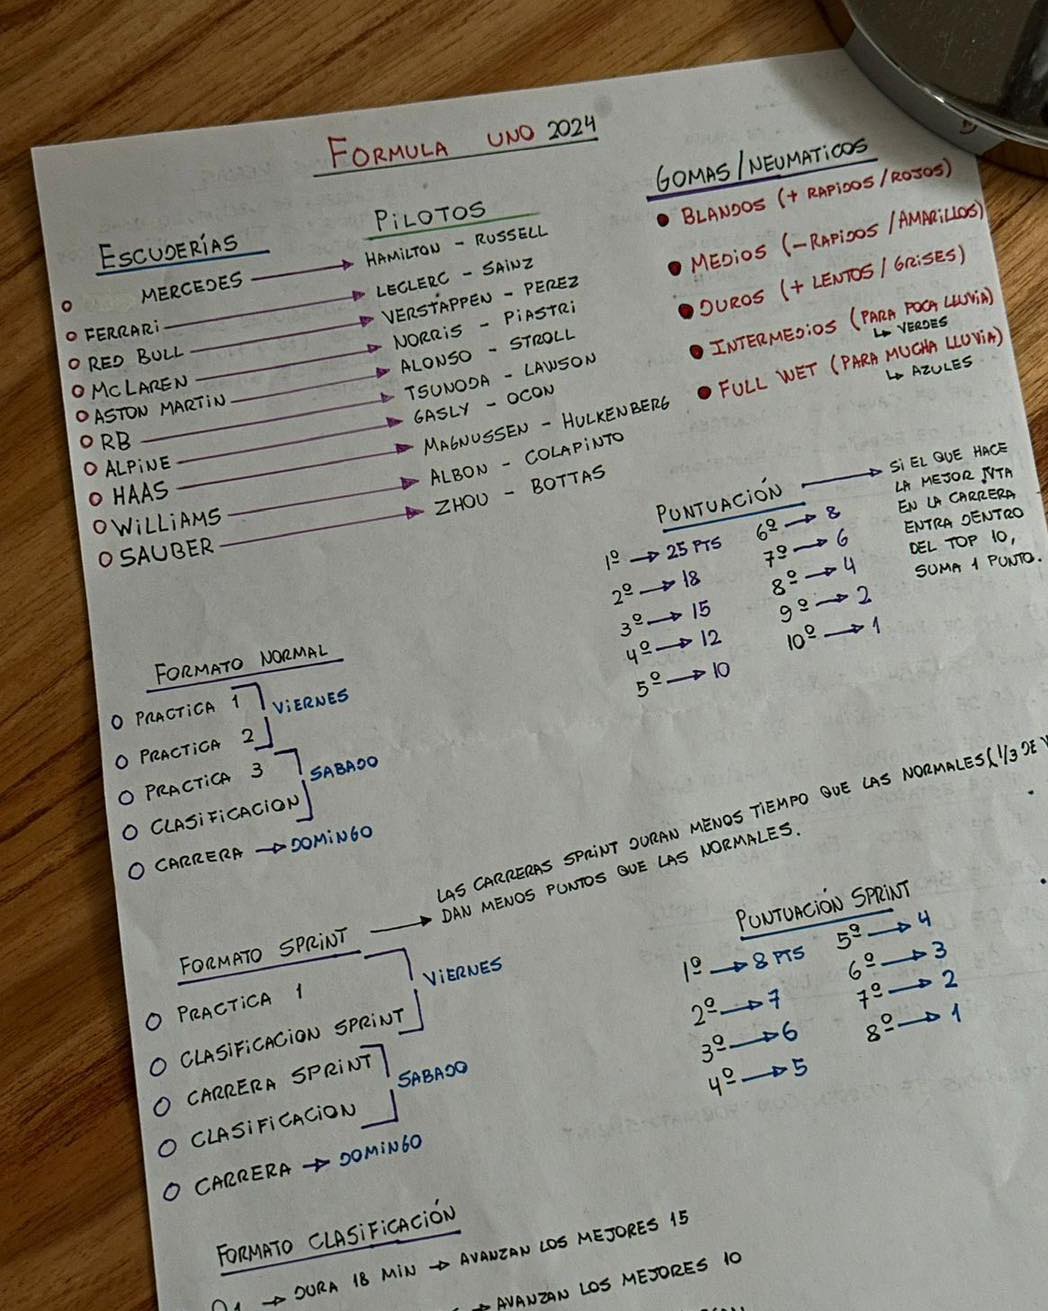 FORMULA UNO 2024
ESCUDERÍAS
O MERCEDES
O FERRARI
O RED BULL
O MCLAREN
O ASTON MARTIN
O RB
O ALPINE
O HAAS
O WILLIAMS
O SAUBER
PILOTOS
HAMILTON - RUSSELL
LECLERC - SAINZ
VERSTAPPEN - PEREZ
NORRIS - PIASTRI
ALONSO - STROLL
TSUNODA - LAWSON
GASLY - OCON
MAGNUSSEN - HULKENBERG
ALBON - COLAPINTO
ZHOU - BOTTAS
GOMAS/NEUMATICOS
• BLANDOS (+ RAPIDOS/ROJOS)
• MEDIOS (-RAPIDOS/AMARILLOS)
• DUROS (+ LENTOS/GRISES)
• INTERMEDIOS (PARA POCA LLUVIA)
↳ VERDES
• FULL WET (PARA MUCHA LLUVIA)
↳ AZULES
PUNTUACIÓN →
1º → 25 PTS
2º → 18
3º → 15
4º → 12
5º → 10
6º → 8
7º → 6
8º → 4
9º → 2
10º → 1
SI EL QUE HACE
LA MEJOR VTA
EN LA CARRERA
ENTRA DENTRO
DEL TOP 10,
SUMA 1 PUNTO.
FORMATO NORMAL
O PRACTICA 1
VIERNES
O PRACTICA 2
O PRACTICA 3
SABADO
O CLASIFICACION
O CARRERA → DOMINGO
FORMATO SPRINT →
LAS CARRERAS SPRINT DURAN MENOS TIEMPO QUE LAS NORMALES (1/3 DE
DAN MENOS PUNTOS QUE LAS NORMALES.
O PRACTICA 1
VIERNES
O CLASIFICACION SPRINT
O CARRERA SPRINT
SABADO
O CLASIFICACION
O CARRERA → DOMINGO
PUNTUACIÓN SPRINT
1º → 8 PTS
2º → 7
3º → 6
4º → 5
5º → 4
6º → 3
7º → 2
8º → 1
FORMATO CLASIFICACIÓN
→ DURA 18 MIN → AVANZAN LOS MEJORES 15
→ AVANZAN LOS MEJORES 10